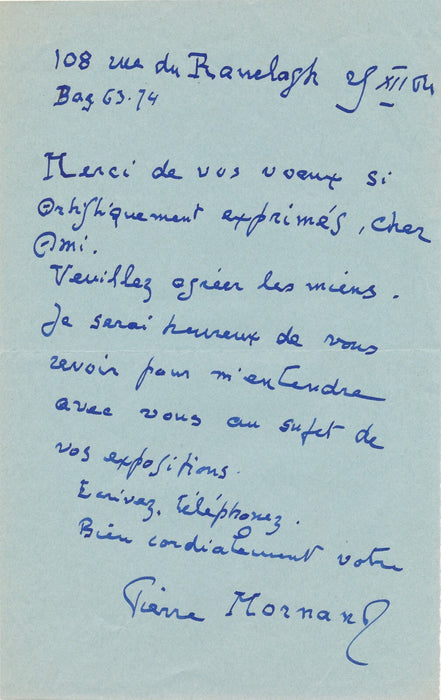 108 rue du Ranelagh 25 XII 64
Bag 63.74
Merci de vos voeux si
artistiquement exprimés, cher
Ami.
Veuillez agréer les miens.
Je serai heureux de vous
revoir pour m'entendre
avec vous au sujet de
vos expositions.
Ecrivez, téléphonez.
Bien cordialement votre
Pierre Mornand